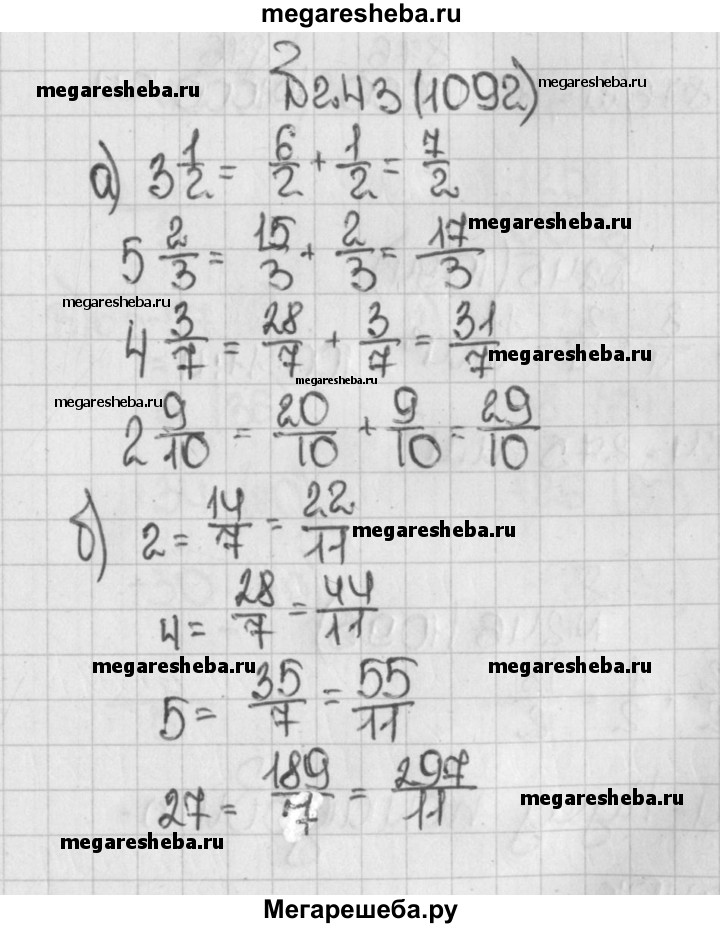 megaresheba.ru
megaresheba.ru № 2.43 (1092) megaresheba.ru
а) 3 1/2 = 6/2 + 1/2 = 7/2
megaresheba.ru
5 2/3 = 15/3 + 2/3 = 17/3
megaresheba.ru
4 3/7 = 28/7 + 3/7 = 31/7
megaresheba.ru
megaresheba.ru
megaresheba.ru
2 9/10 = 20/10 + 9/10 = 29/10
б) 2 = 14/7 = 22/11
megaresheba.ru
4 = 28/7 = 44/11
megaresheba.ru megaresheba.ru
5 = 35/7 = 55/11
27 = 189/7 = 297/11
megaresheba.ru
megaresheba.ru
Мегарешеба.ру